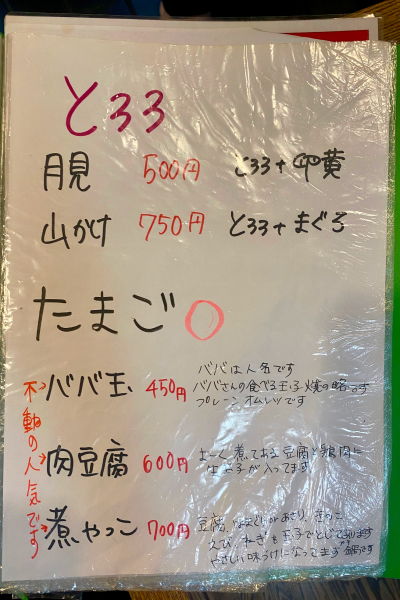 とろろ
月見 500円 とろろ+卵黄
山かけ 750円 とろろ+まぐろ
たまご
不動の人気です
ババ玉 450円
ババは人名です
ババさんの食べる玉子焼の略です
プレーンオムレツです
肉豆腐 600円
よーく煮てある豆腐と鶏肉に
生玉子が入ってます
煮やっこ 700円
豆腐、なると、あさり、
えび ねぎを玉子でとじてあります
やさしい味つけになってます